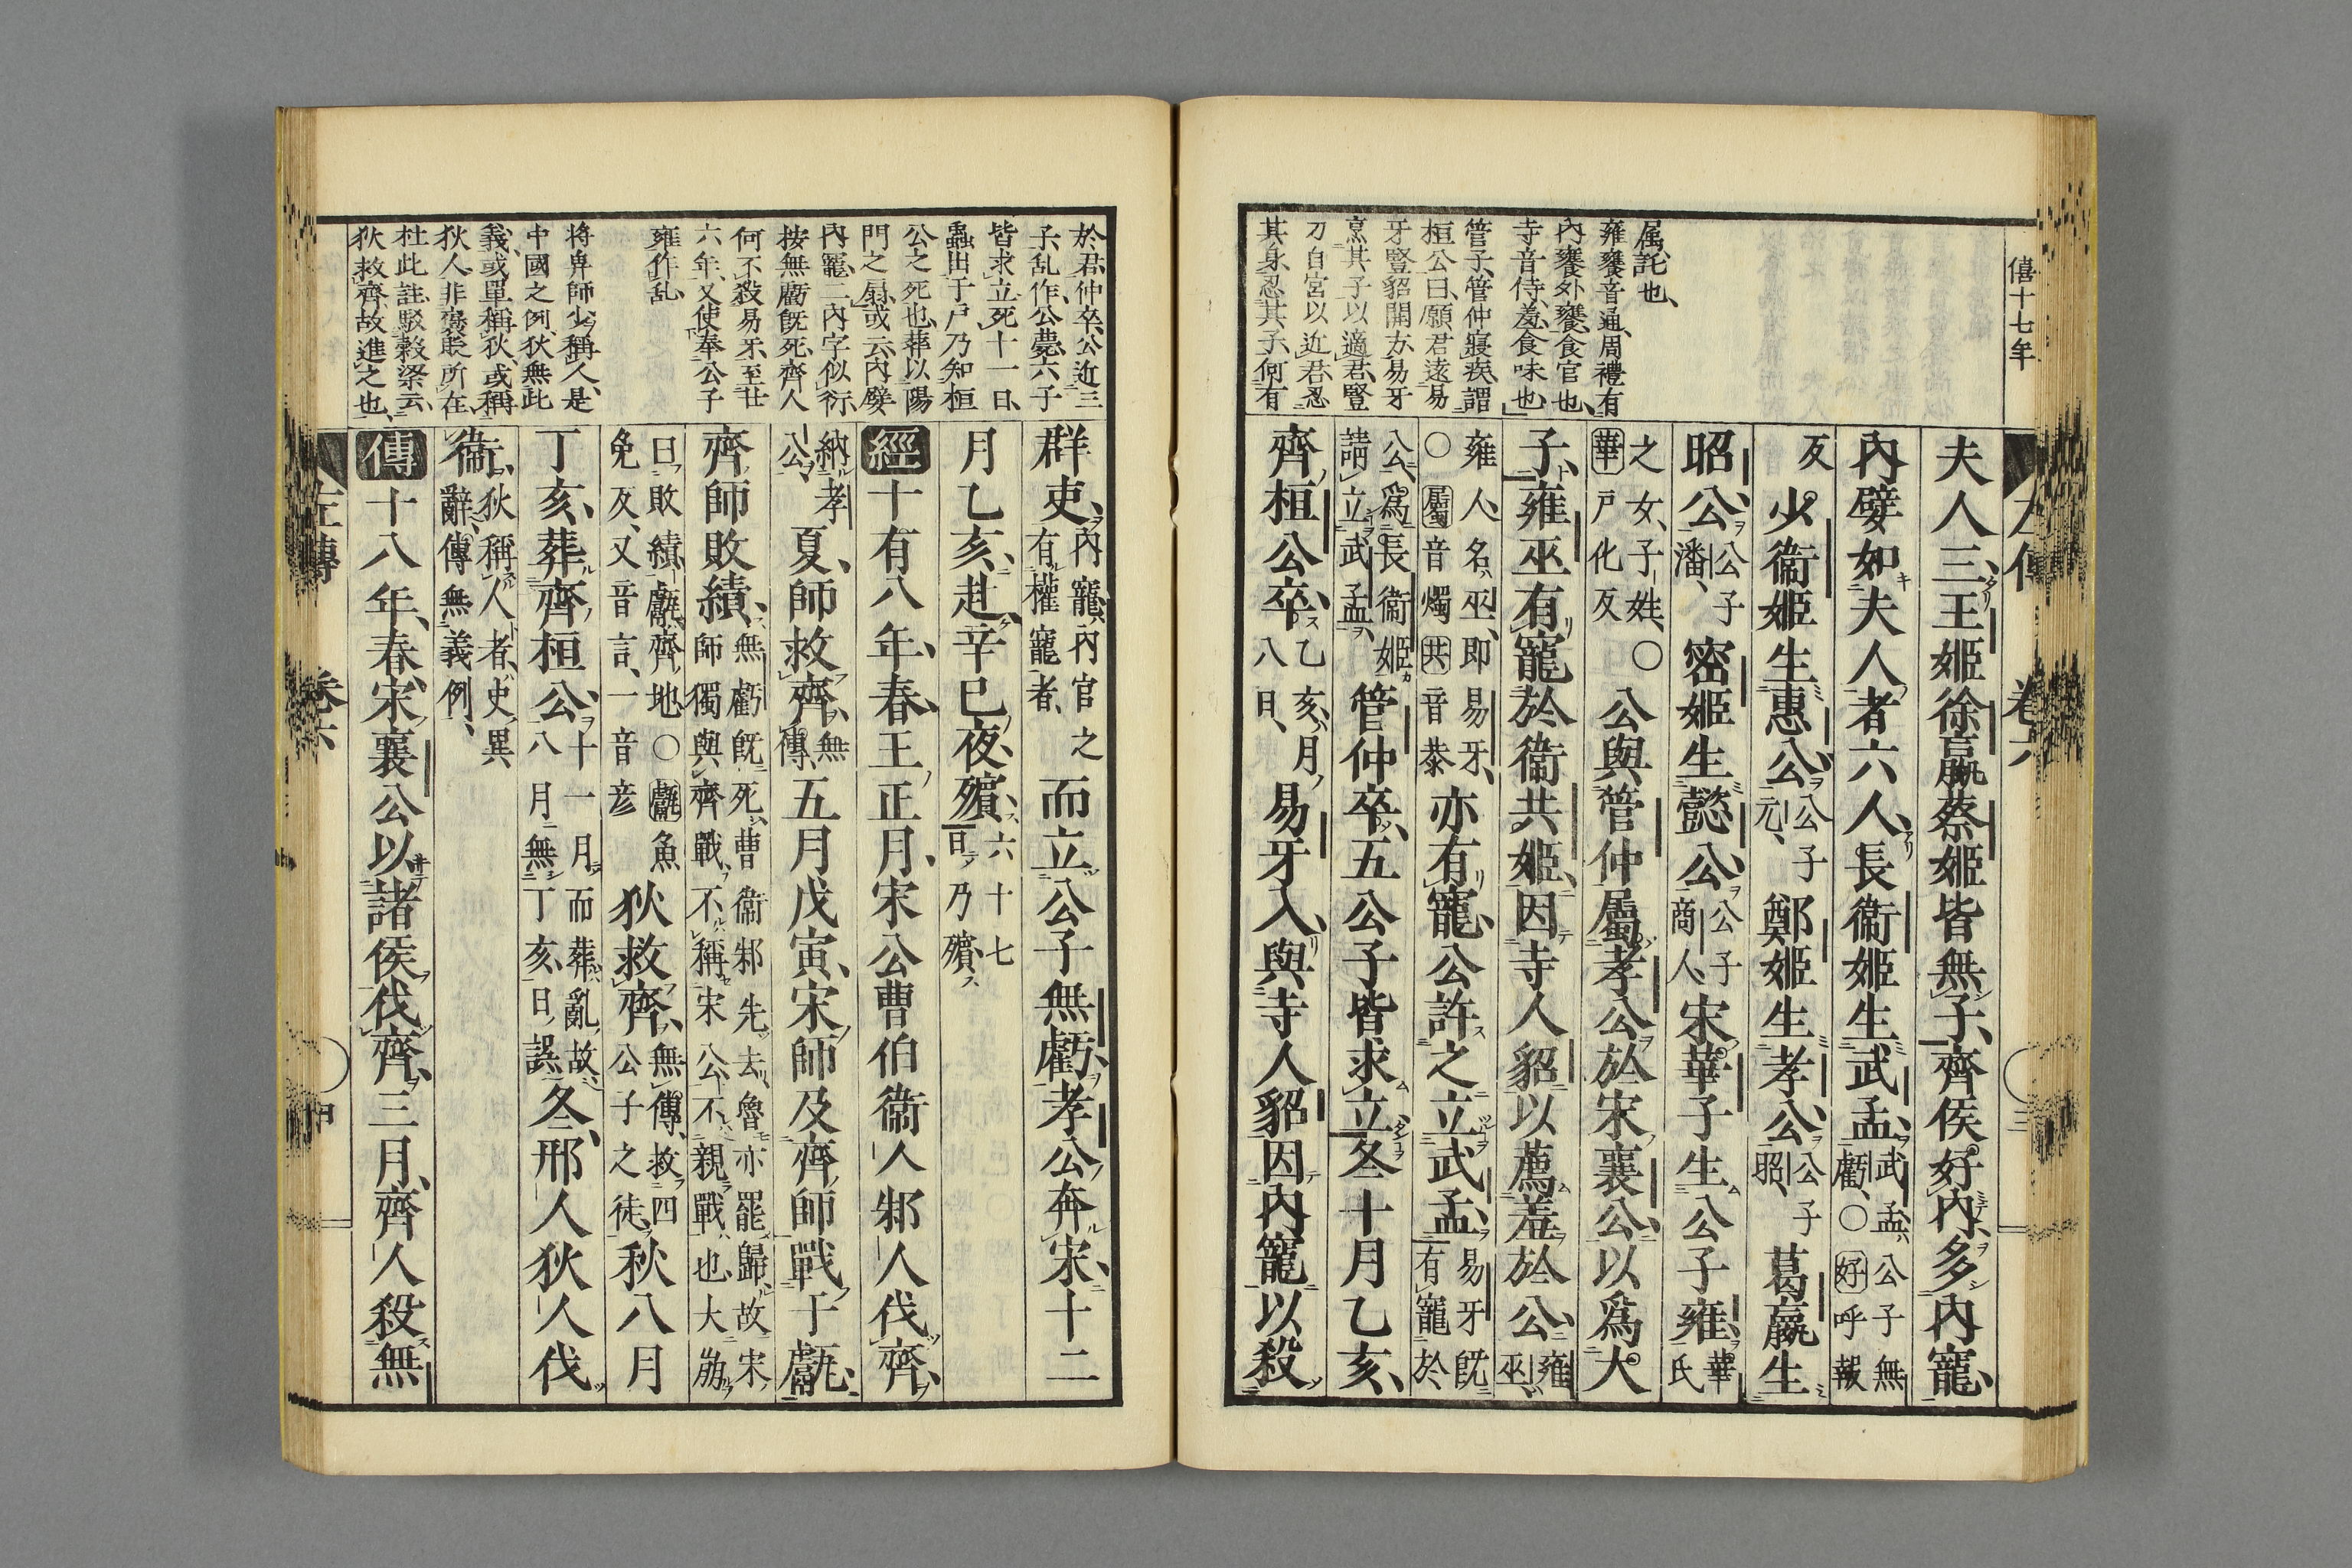 僖十七年
左傳 卷六
三
属、託也、
雍饔音通、周禮有
內饔外饔、食官也、
寺音侍、羞食味也、
管子、管仲寢疾、謂
桓公曰、願君遠易
牙豎貂開方、易牙
烹其子以適君、豎
刀自宮以近君、忍
其身、忍其子、何有
夫人三、王姬徐嬴蔡姬皆無子、齊侯好內、多內寵、
內嬖如夫人者六人、長衞姬生武孟、武孟、公子無虧、〇好呼報
反少衞姬生惠公、公子元、鄭姬生孝公、公子昭、葛嬴生
昭公、公子潘、密姬生懿公、公子商人、宋華子生公子雍、華氏
之女、子姓、〇華戸化反公與管仲屬孝公於宋襄公、以爲大
子、雍巫有寵於衞共姬、因寺人貂以薦羞於公、雍巫、
雍人、名巫、即易牙、〇屬音燭共音恭亦有寵、公許之立武孟、易牙既有寵於
公、爲長衞姬請立武孟、管仲卒、五公子皆求立、冬十月乙亥、
齊桓公卒、乙亥、月八日、易牙入、與寺人貂因內寵以殺
於君、仲卒、公近三
子、乱作、公薨、六子
皆求立、死十一日、
蟲出于戸、乃知桓
公之死也、葬以陽
門之扇、或云、內嬖
內寵、二內字似衍、
按無虧既死、齊人
何不殺易牙、至廿
六年、又使奉公子
雍作乱、
将卑師少稱人、是
中國之例、狄無此
義、或單稱狄、或稱
狄人、非褒貶所在、
杜此註、駁穀梁云、
狄救齊、故進之也、
群吏、內寵、內官之有權寵者、而立公子無虧、孝公奔宋、十二
月乙亥、赴、辛巳夜、殯、六十七日、乃殯、
經十有八年、春、王正月、宋公曹伯衞人邾人伐齊、
納孝公、夏、師救齊、無傳、五月戊寅、宋師及齊師戰于甗、
齊師敗績、無虧既死、曹衞邾先去、魯亦罷歸、故宋師獨與齊戰、不稱宋公、不親戰也、大崩
曰敗績、甗、齊地、〇甗魚免反、又音言、一音彦狄救齊、無傳、救四公子之徒、秋八月
丁亥、葬齊桓公、十一月而葬、亂故、八月無丁亥、日誤、冬、邢人狄人伐
衞、狄稱人者、史異辭、傳無義例、
傳十八年、春、宋襄公以諸侯伐齊、三月、齊人殺無
左傳 卷六